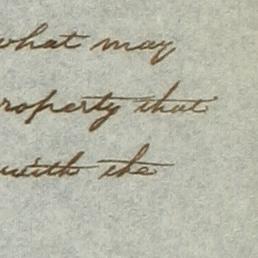 what may
roperty that
with the